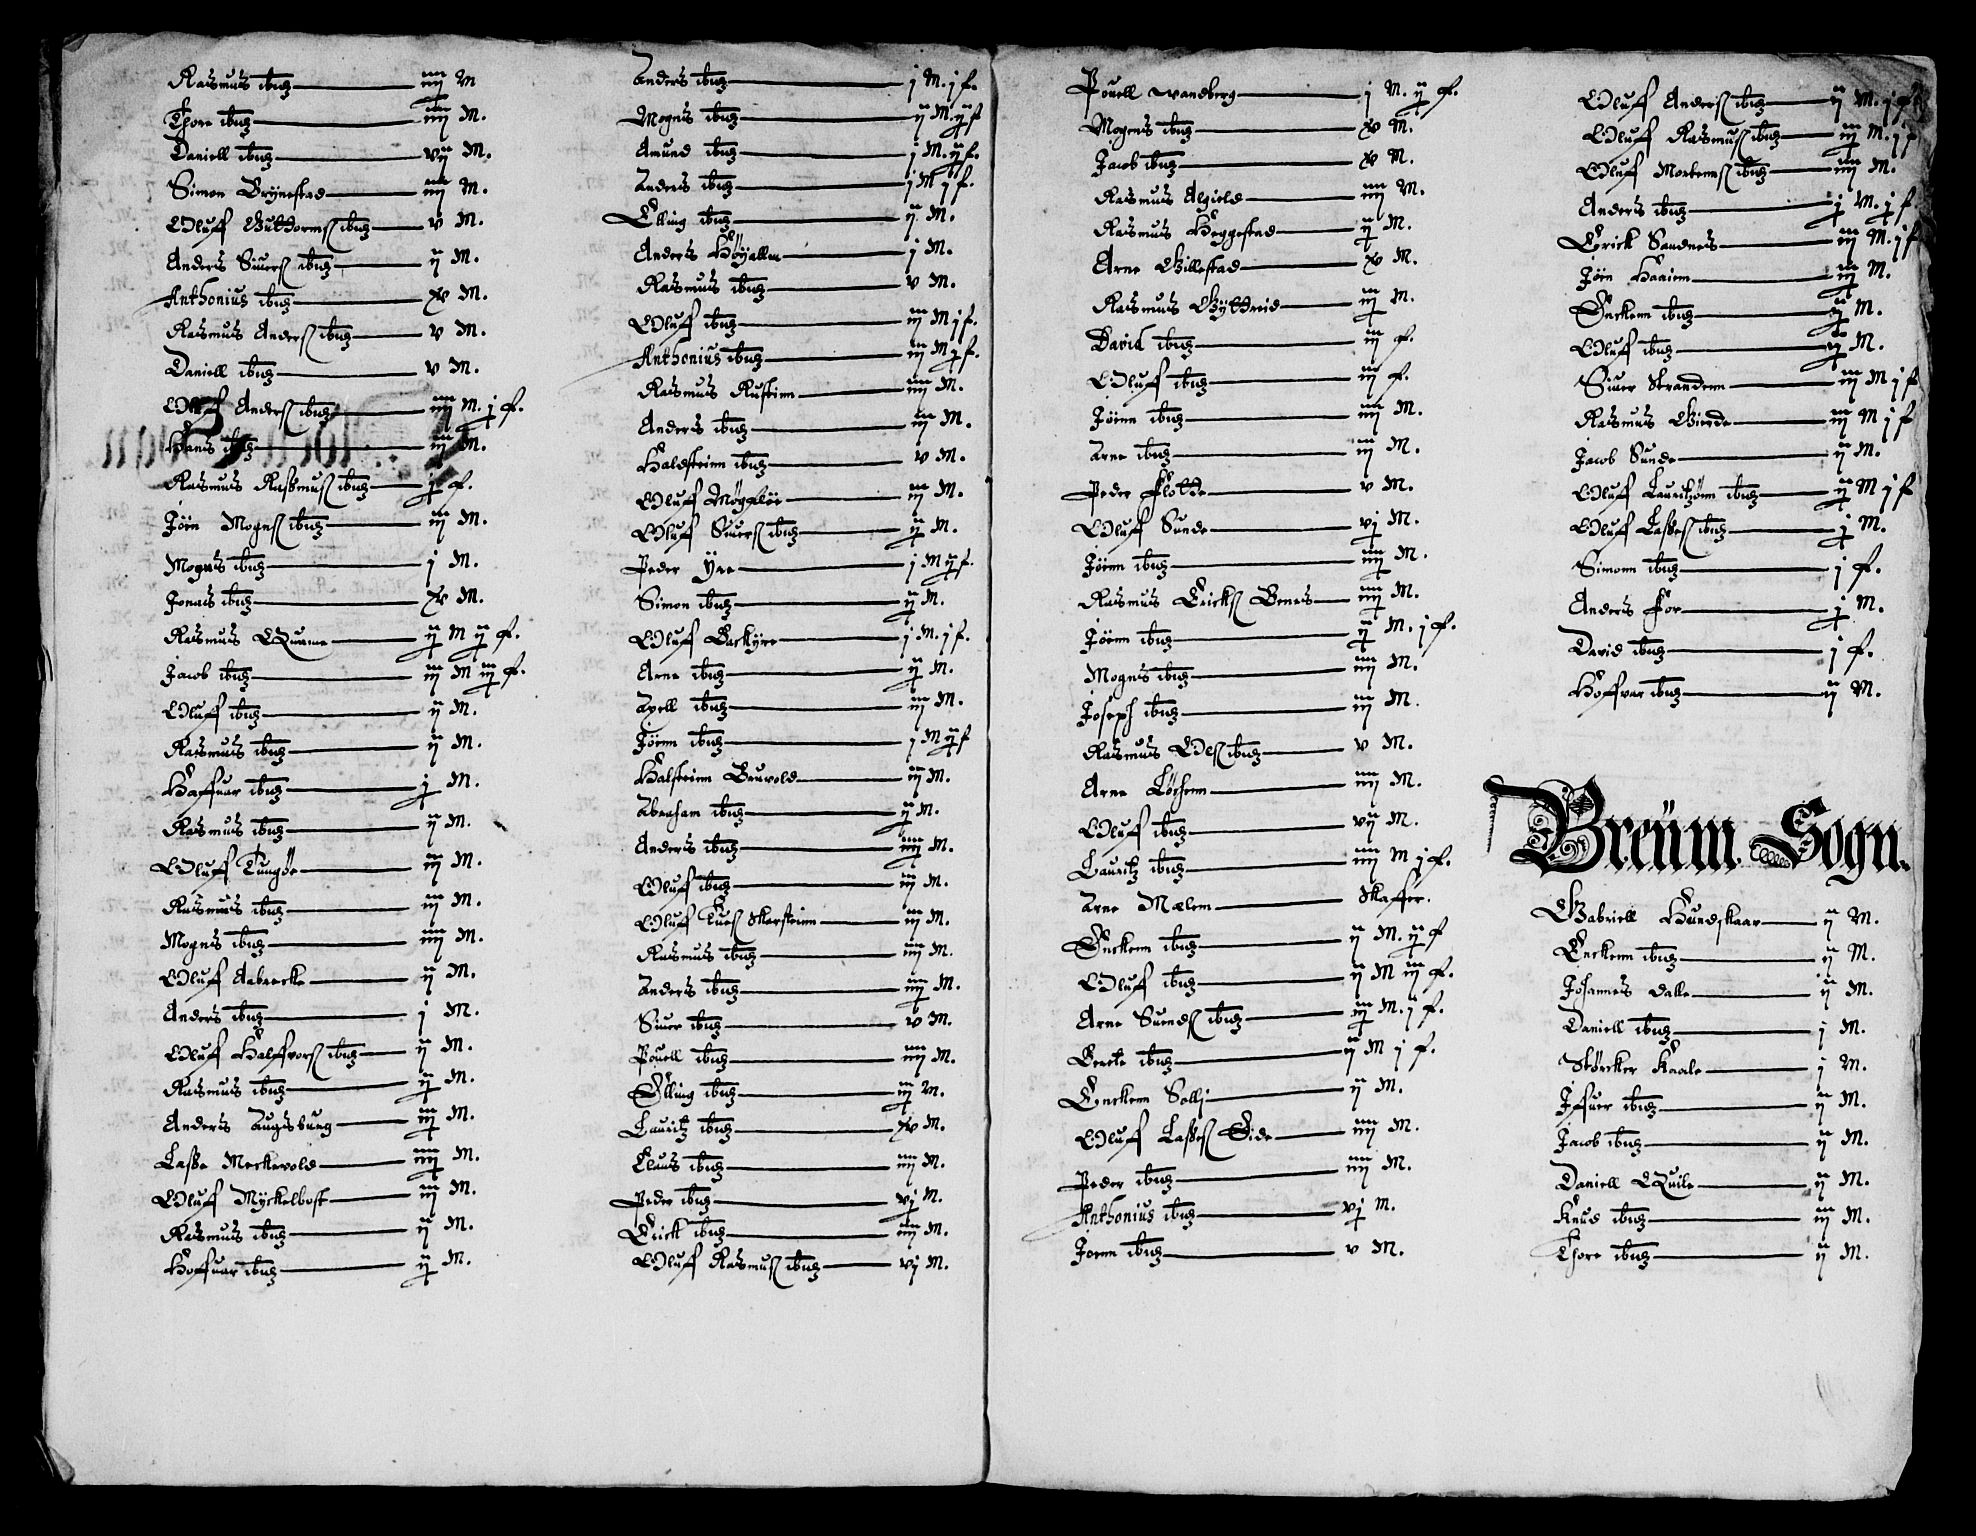 Rasmus ibid: iiij M
Thore ibid: iiij M.
Daniell ibid: vij M.
Simon Brynestad iiij M.
Oluff Guttorms ibid: v M.
Anders Siuers ibid: ij M.
Anthonius ibid: xv M.
Rasmus Anders ibid: v M.
Daniell ibid: v M.
Oluff Anders ibid: iiij M. j f.
Hans ibid: iij M.
Rasmus Rasmus ibid: j f.
Jørn Mogns ibid: iij M.
Mogns ibid: j M.
Jonas ibid: xv M.
Rasmus Quame ij M ij f.
Jacob ibid: iij M iij f.
Oluff ibid: ij M.
Rasmus ibid: ij M.
Haffuar ibid: j M.
Rasmus ibid: ij M.
Oluff Tungøe iij M.
Rasmus ibid: iij M.
Mogns ibid: iiij M.
Oluff Aabrecke ij M.
Anders ibid: j M.
Oluff Halffvors ibid: ij M.
Rasmus ibid: ij M.
Anders Augsburg iij M.
Lasse Meckevold iiij M.
Oluff Myckelbost iij M.
Rasmus ibid: ij M.
Hoffuar ibid: ij M.
Anders ibid: j M. j f.
Mogns ibid: ij M. ij f
Amund ibid: j M. ij f.
Anders ibid: j M j f.
Elling ibid: ij M.
Anders Høyallm j M.
Rasmus ibid: v M.
Oluff ibid: iij M j f.
Anthonius ibid: iij M j f.
Rasmus Rustinn iiij M.
Anders ibid: iij M.
Haldsteinn ibid: v M.
Oluff Møgaløe iij M.
Oluff Siuers ibid: ij M.
Peder Yre j M ij f.
Simon ibid: ij M.
Oluff Backyre j M. j f.
Arne ibid: ij M.
Axell ibid: iij M.
Jörnn ibid: j M ij f
Halsteinn Bruvold iij M.
Abraham ibid: ij M.
Anders ibid: iiij M.
Oluff ibid: iij M.
Oluff Tues Skarsteinn iij M.
Rasmus ibid: iiij M.
Anders ibid: iiij M.
Siuer ibid: v M.
Pouell ibid: iiij M.
Elling ibid: iij M.
Lauritz ibid: xv M.
Claus ibid: iiij M.
Peder ibid: vj M.
Erick ibid: iiij M.
Oluff Rasmus ibid: vj M.
Pouell wandberg j M. ij f.
Mogens ibid: xv M.
Jacob ibid: xv M.
Rasmus Algield iiij M.
Rasmus Heggestad ij M.
Arne Gillestad xv M.
Rasmus Gyttreid iij M.
David ibid: iij f.
Oluff ibid: iij f.
Jörnn ibid: iiij M.
Arne ibid: iij M.
Peder Flotte v M.
Oluff Sunde vj M.
Jörnn ibid: iiij M.
Rasmus Ericks Benes iiij M.
Jörnn ibid: ij M. j f.
Mogns ibid: iiij M.
Joseph ibid: iij M.
Rasmus Oles ibid: v M.
Arne Løchenn iiij M.
Oluff ibid: vij M.
Lauritz ibid: iiij M j f.
Arne Mælem skaffer.
Enckenn ibid: ij M. ij f
Oluff ibid: ij M iij f.
Arne Suends ibid: iij M. j f.
Berete ibid: ij M j f.
Enckenn Sollj ij M.
Oluff Lasses Eide iiij M.
Peder ibid: iiij M.
Anthonius ibid: vj M.
Joenn ibid: v M.
Oluff Anders ibid: ij M. j f
Oluff Rasmus ibid: iij M. j f
Oluff Mortenns ibid: iiij M.
Anders ibid: j M. j f
Erick Sandnes iij M. j f
Jörn Haaiem iij M.
Enckenn ibid: ij M.
Oluff ibid: ij M.
Siuer Strandenn iij M j f
Rasmus Gierde iij M j f
Jacob Sunde ij M.
Oluff Lauritzönn ibid: ij M j f
Oluff Lasses ibid: j M.
Simonn ibid: j f.
Anders For j M.
David ibid: j f.
Hoffvar ibid: ij M.
Breüm Sogn.
Gabriell Hundskaar ij M.
Enckenn ibid: ij M.
Johannes Dalle ij M.
Daniell ibid: j M.
Størcker Kaale j M.
Jffuer ibid: ij M.
Jacob ibid: ij M.
Daniell Quile ij M.
Knud ibid: iij M.
Thore ibid: ij M.